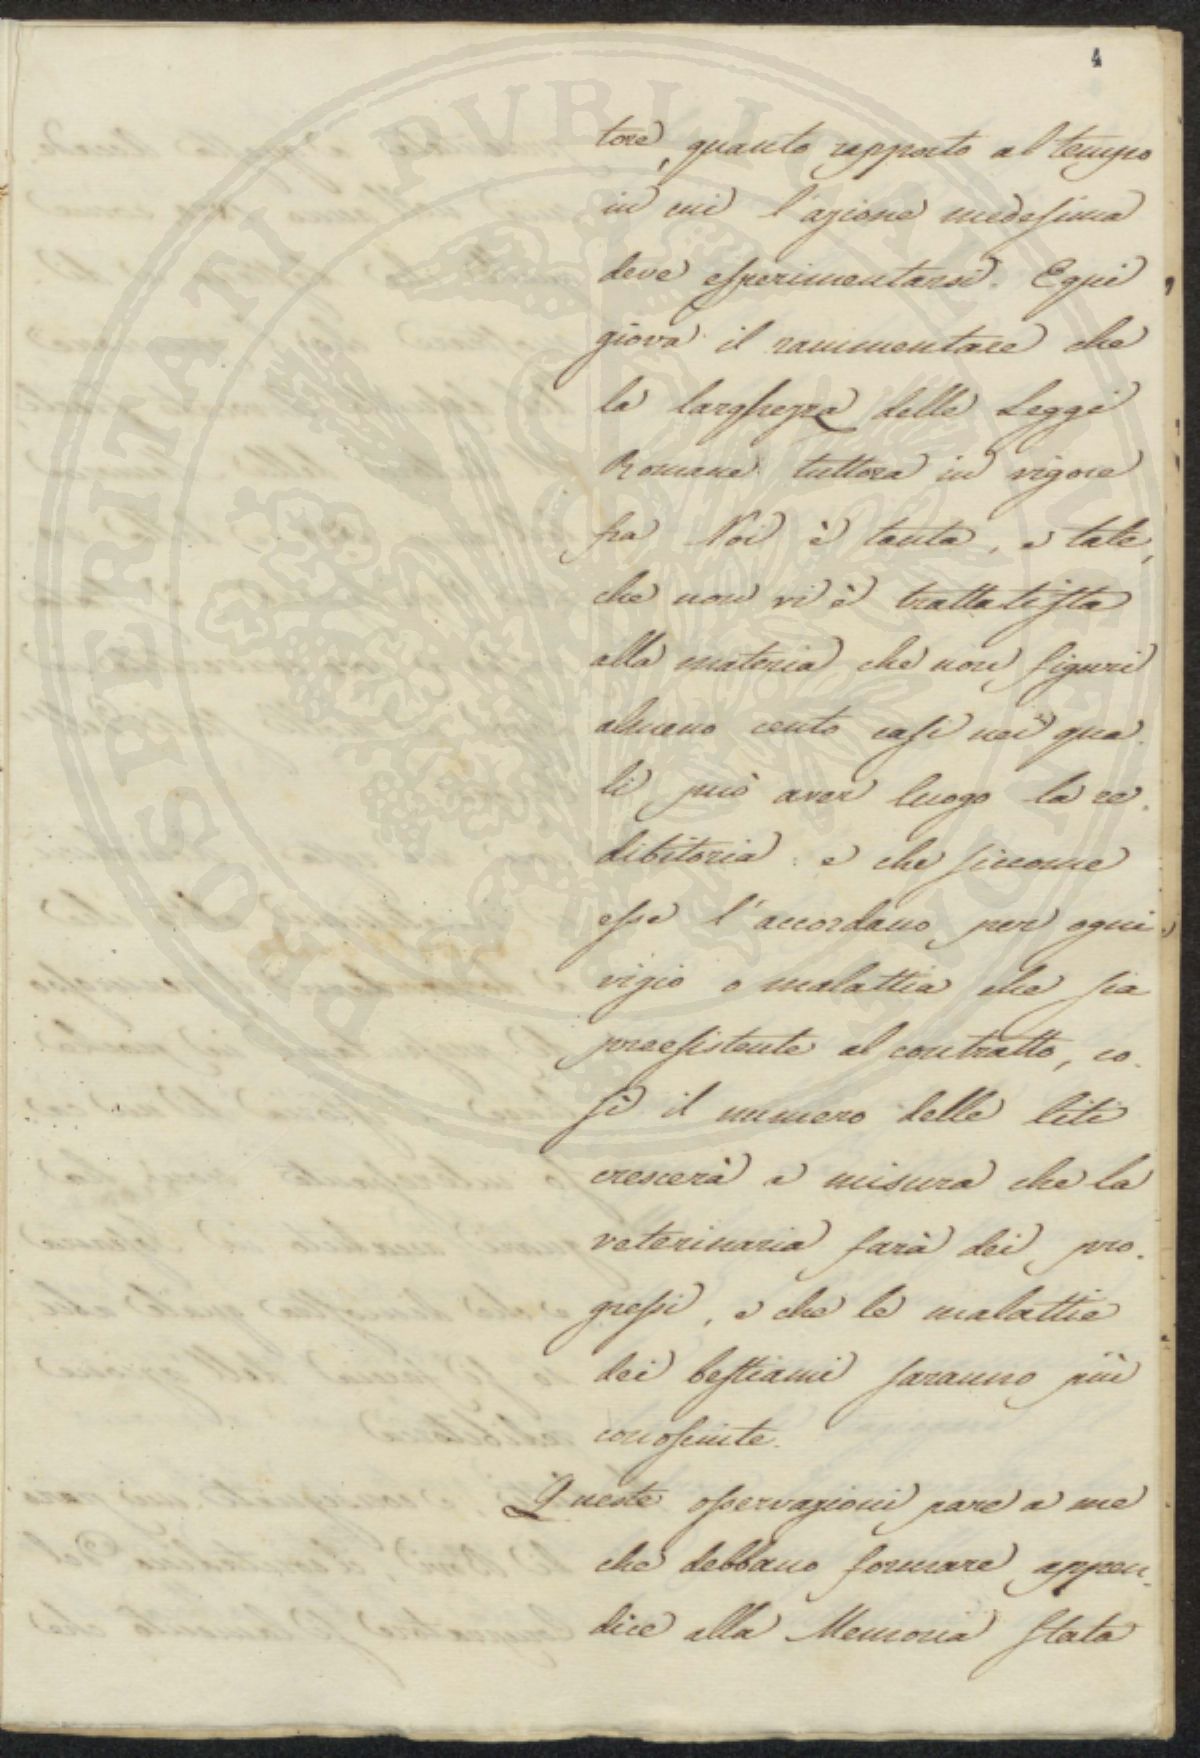 4
tore, quanto rapporto al tempo
in cui l'azione medesima
deve esperimentarsi. E qui
giova il rammentare che
la larghezza delle Leggi
Romane tuttora in vigore
fra Noi è tanta, e tale,
che non vi è trattatista
alla materia che non figuri
almeno cento casi nei qua-
li può aver luogo la re-
dibitoria: e che siccome
esse l'accordano per ogni
vizio o malattia che sia
preesistente al contratto, co-
sì il numero delle liti
crescerà a misura che la
veterinaria farà dei pro-
gressi, e che le malattie
dei bestiami saranno più
conosciute.
Queste osservazioni pare a me
che debbano formare appen-
dice alla Memoria stata
PROSPERITATI PUBLICAE AUGENDAE